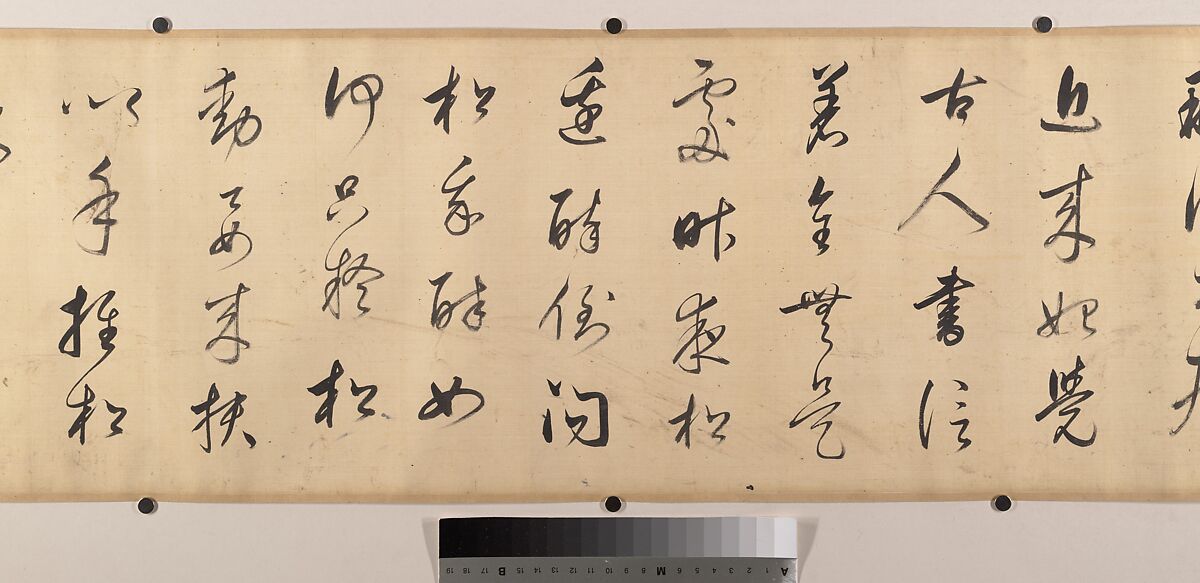 近來始覺
古人書信
著全無是
處昨夜松
邊醉倒問
松我醉如
何只疑松
動要來扶
以手推松
A 1 2 3 4 5 6 M 8 9 10 11 12 13 14 15 B 17 18 19